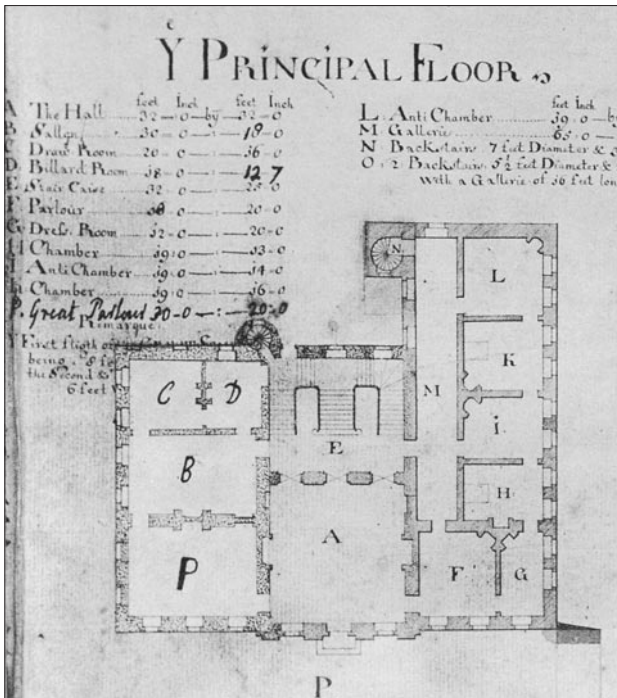 Ÿ PRINCIPAL FLOOR
feet Inch feet Inch
A The Hall 32 - 0 - by - 32 - 0
B Sallon 30 - 0 - : - 18 - 0
C Draw: Room 20 - 0 - : - 16 - 0
D Billard Room 18 - 0 - : - 12 - 7
E Stair Caise 32 - 0 - : - 25 - 0
F Parlour - 0 - : - 20 - 0
G Dress: Room 12 - 0 - : - 20 - 0
H Chamber 19 : 0 - : - 13 - 0
I Anti Chamber 19 : 0 - : - 14 - 0
Chamber 19 : 0 - : - 16 - 0
P. Great Parlour 30 - 0 - : - 20 : 0
Remarque
Y First fligth of
being
the Second &
6 feet
feet Inch
L : Anti Chamber 19 : 0 - by
M : Gallerie 65 : 0 -
N : Backstairs 7 feet Diameter &
O : 2 : Backstairs 5½ feet Diameter &
With a Gallerie of 16 feet lon
N
L
C
D
K
M
B
E
i
H
A
P
F
G
P